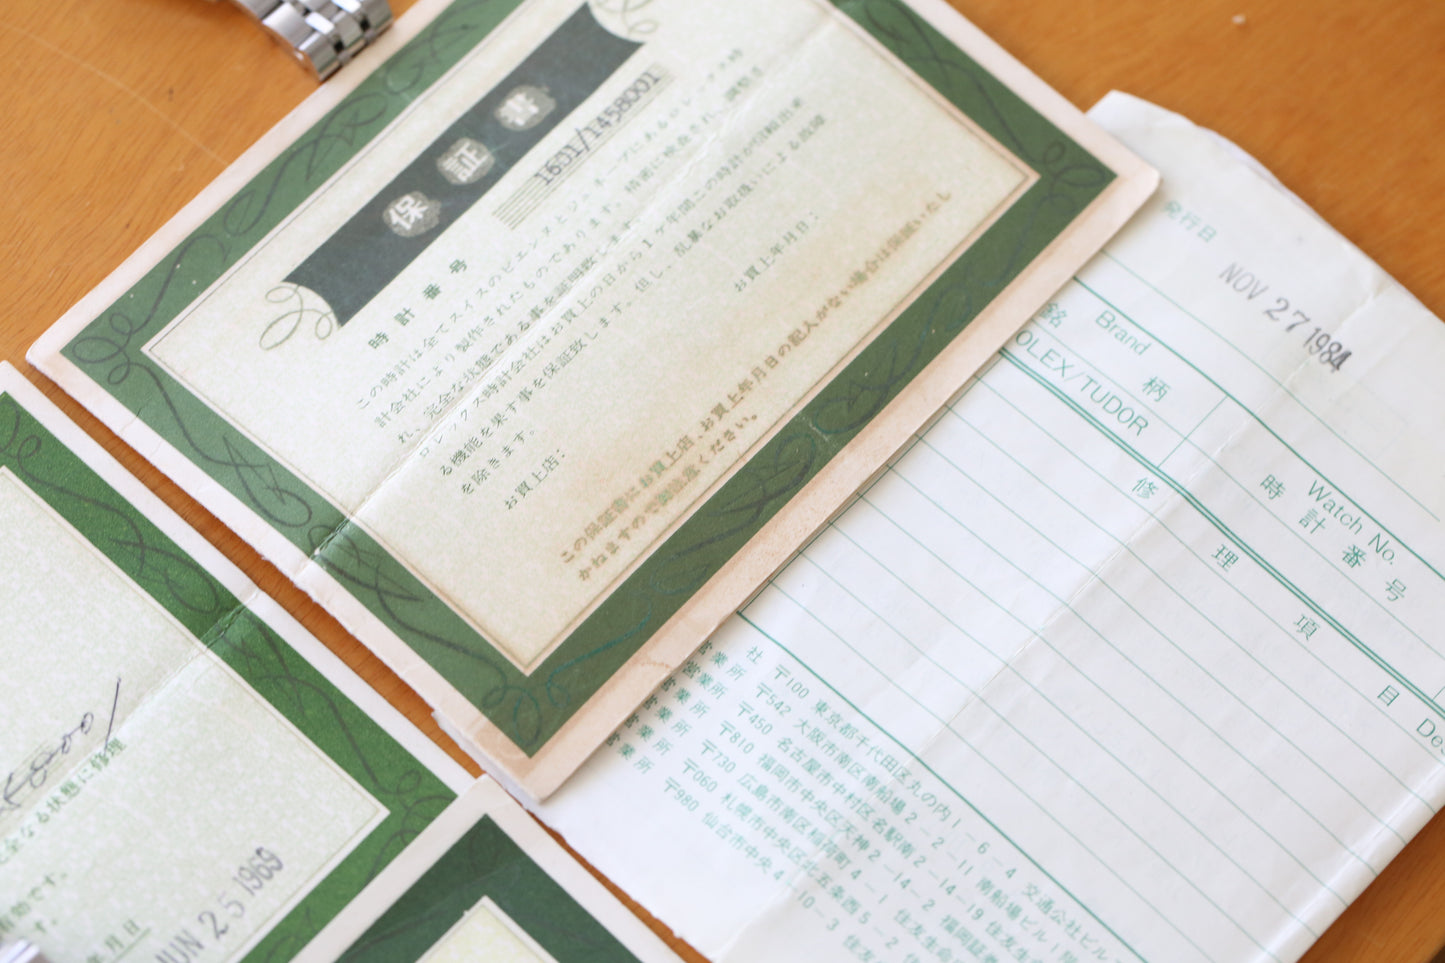 保証書
1601/1458001
時計番号
この時計は全てスイスのビエンヌとジュネーブにあるロレックス時
計会社により製作されたものであります。精密に検査され、調整さ
れ、完全な状態である事を証明致します。
ロレックス時計会社はお買上の日から1ヶ年間この時計が
る機能を果す事を保証致します。但し、乱暴なお取扱いによる故障
を除きます。
お買上店：
お買上年月日：
この保証書にお買上店、お買上年月日の記入がない場合は保証いたし
かねますので御注意ください。
発行日
NOV 27 1984
銘
Brand
柄
OLEX/TUDOR
Watch No.
時計番号
修理項目
De
社 〒100 東京都千代田区丸の内1-6-4 交通公社ビル
営業所 〒542 大阪市南区南船場2-2-11 南船場ビル1階
営業所 〒450 名古屋市中村区名駅南2-14-19 住友生
営業所 〒810 福岡市中央区天神2-14-2 福岡証券
営業所 〒730 広島市南区稲荷町4-1 住友生命
営業所 〒060 札幌市中央区北五条西5-2
営業所 〒980 仙台市中央4-10-3 住友
なる状態に修理
効です。
す。
年月日
JUN 25 1969